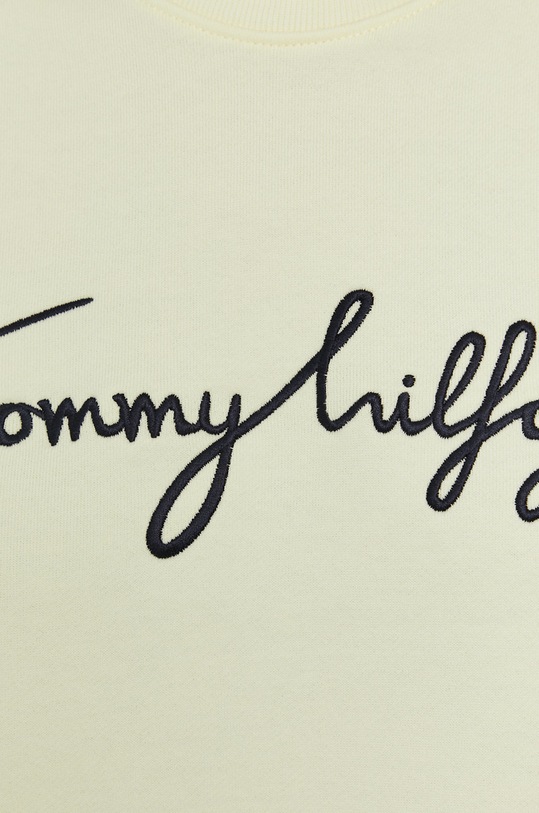 Tommy hilfg